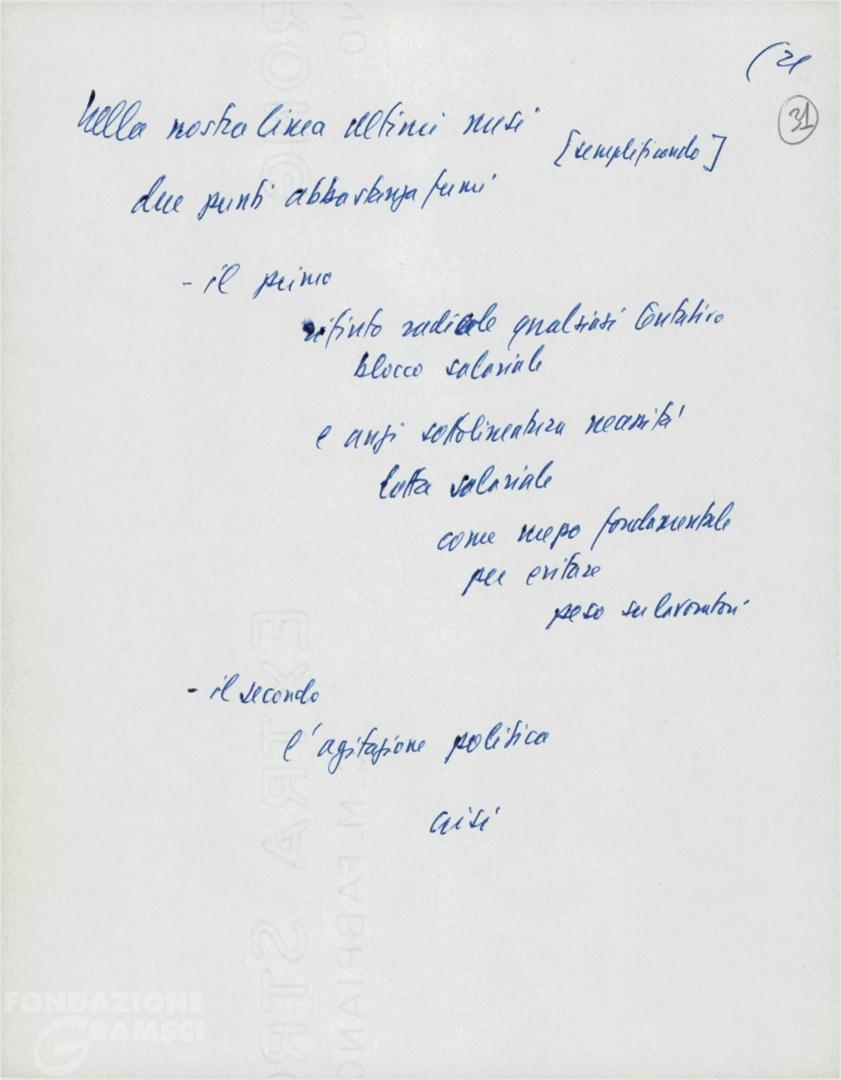 31
Nella nostra linea ultimi mesi
[semplificando]
due punti abbastanza fermi
- il primo
rifiuto radicale qualsiasi tentativo
blocco salariale
e anzi sottolineatura necessità
lotta salariale
come mezzo fondamentale
per evitare
peso su lavoratori
- il secondo
l'agitazione politica
crisi
EXTRA STR
M.FABRIANO
FONDAZIONE
GRAMSCI